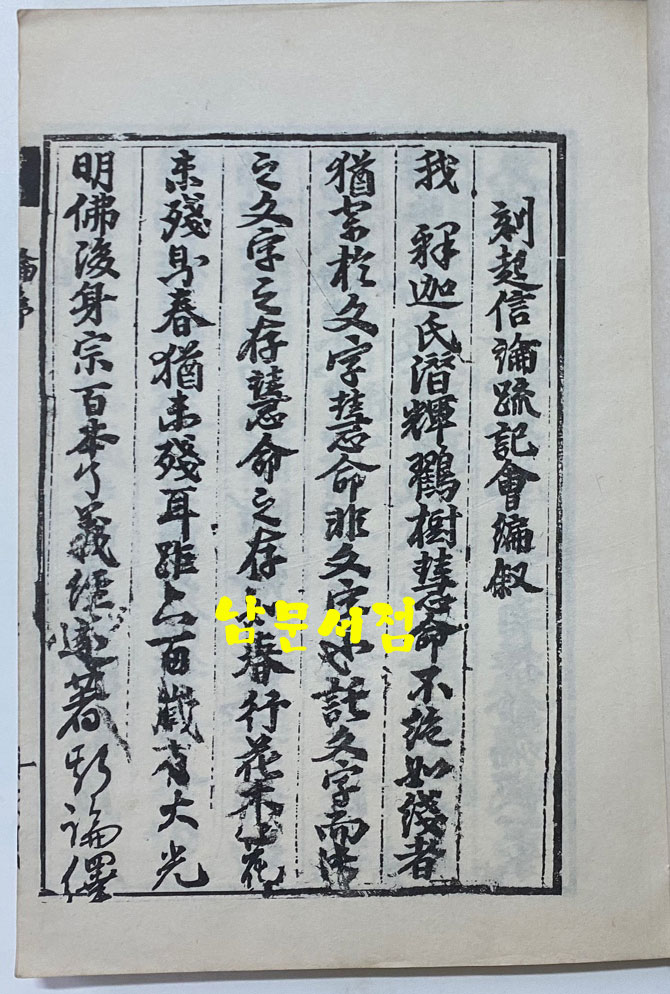 刻起信論疏記會編敘
我 釋迦氏潛輝鸖樹慧命不絶如綫者
猶寄於文字慧命非文字也託文字而傳
之文字之存慧命之存如春行花木花
未殘則春猶未殘耳距六百歲有大光
明佛後身宗百本了義經著斯論繹
論序
一
남문서점